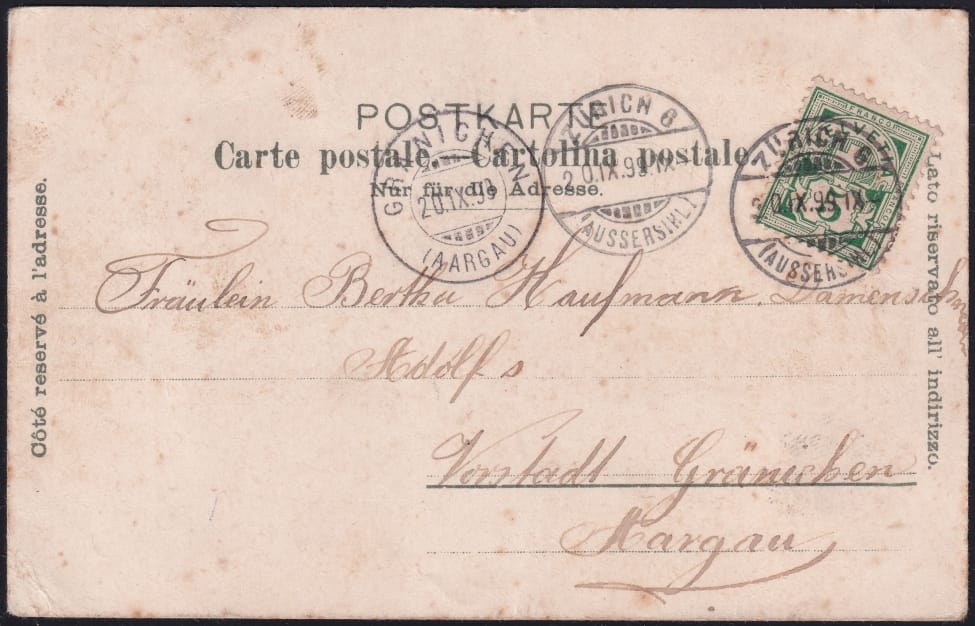 POSTKARTE
Carte postale. Cartolina postale.
Nur für die Adresse.
GRÄNICHEN
20.IX.99
(AARGAU)
ZÜRICH 8
20.IX.99.IX
(AUSSERSIHL)
HELVETIA
FRANCO
5
ZÜRICH 8
(AUSSERS
Côté reservé à l'adresse.
Lato riservato all' indirizzo.
Fräulein Bertha Kaufmann.
Adolfs
Vorstadt Gränichen
Aargau